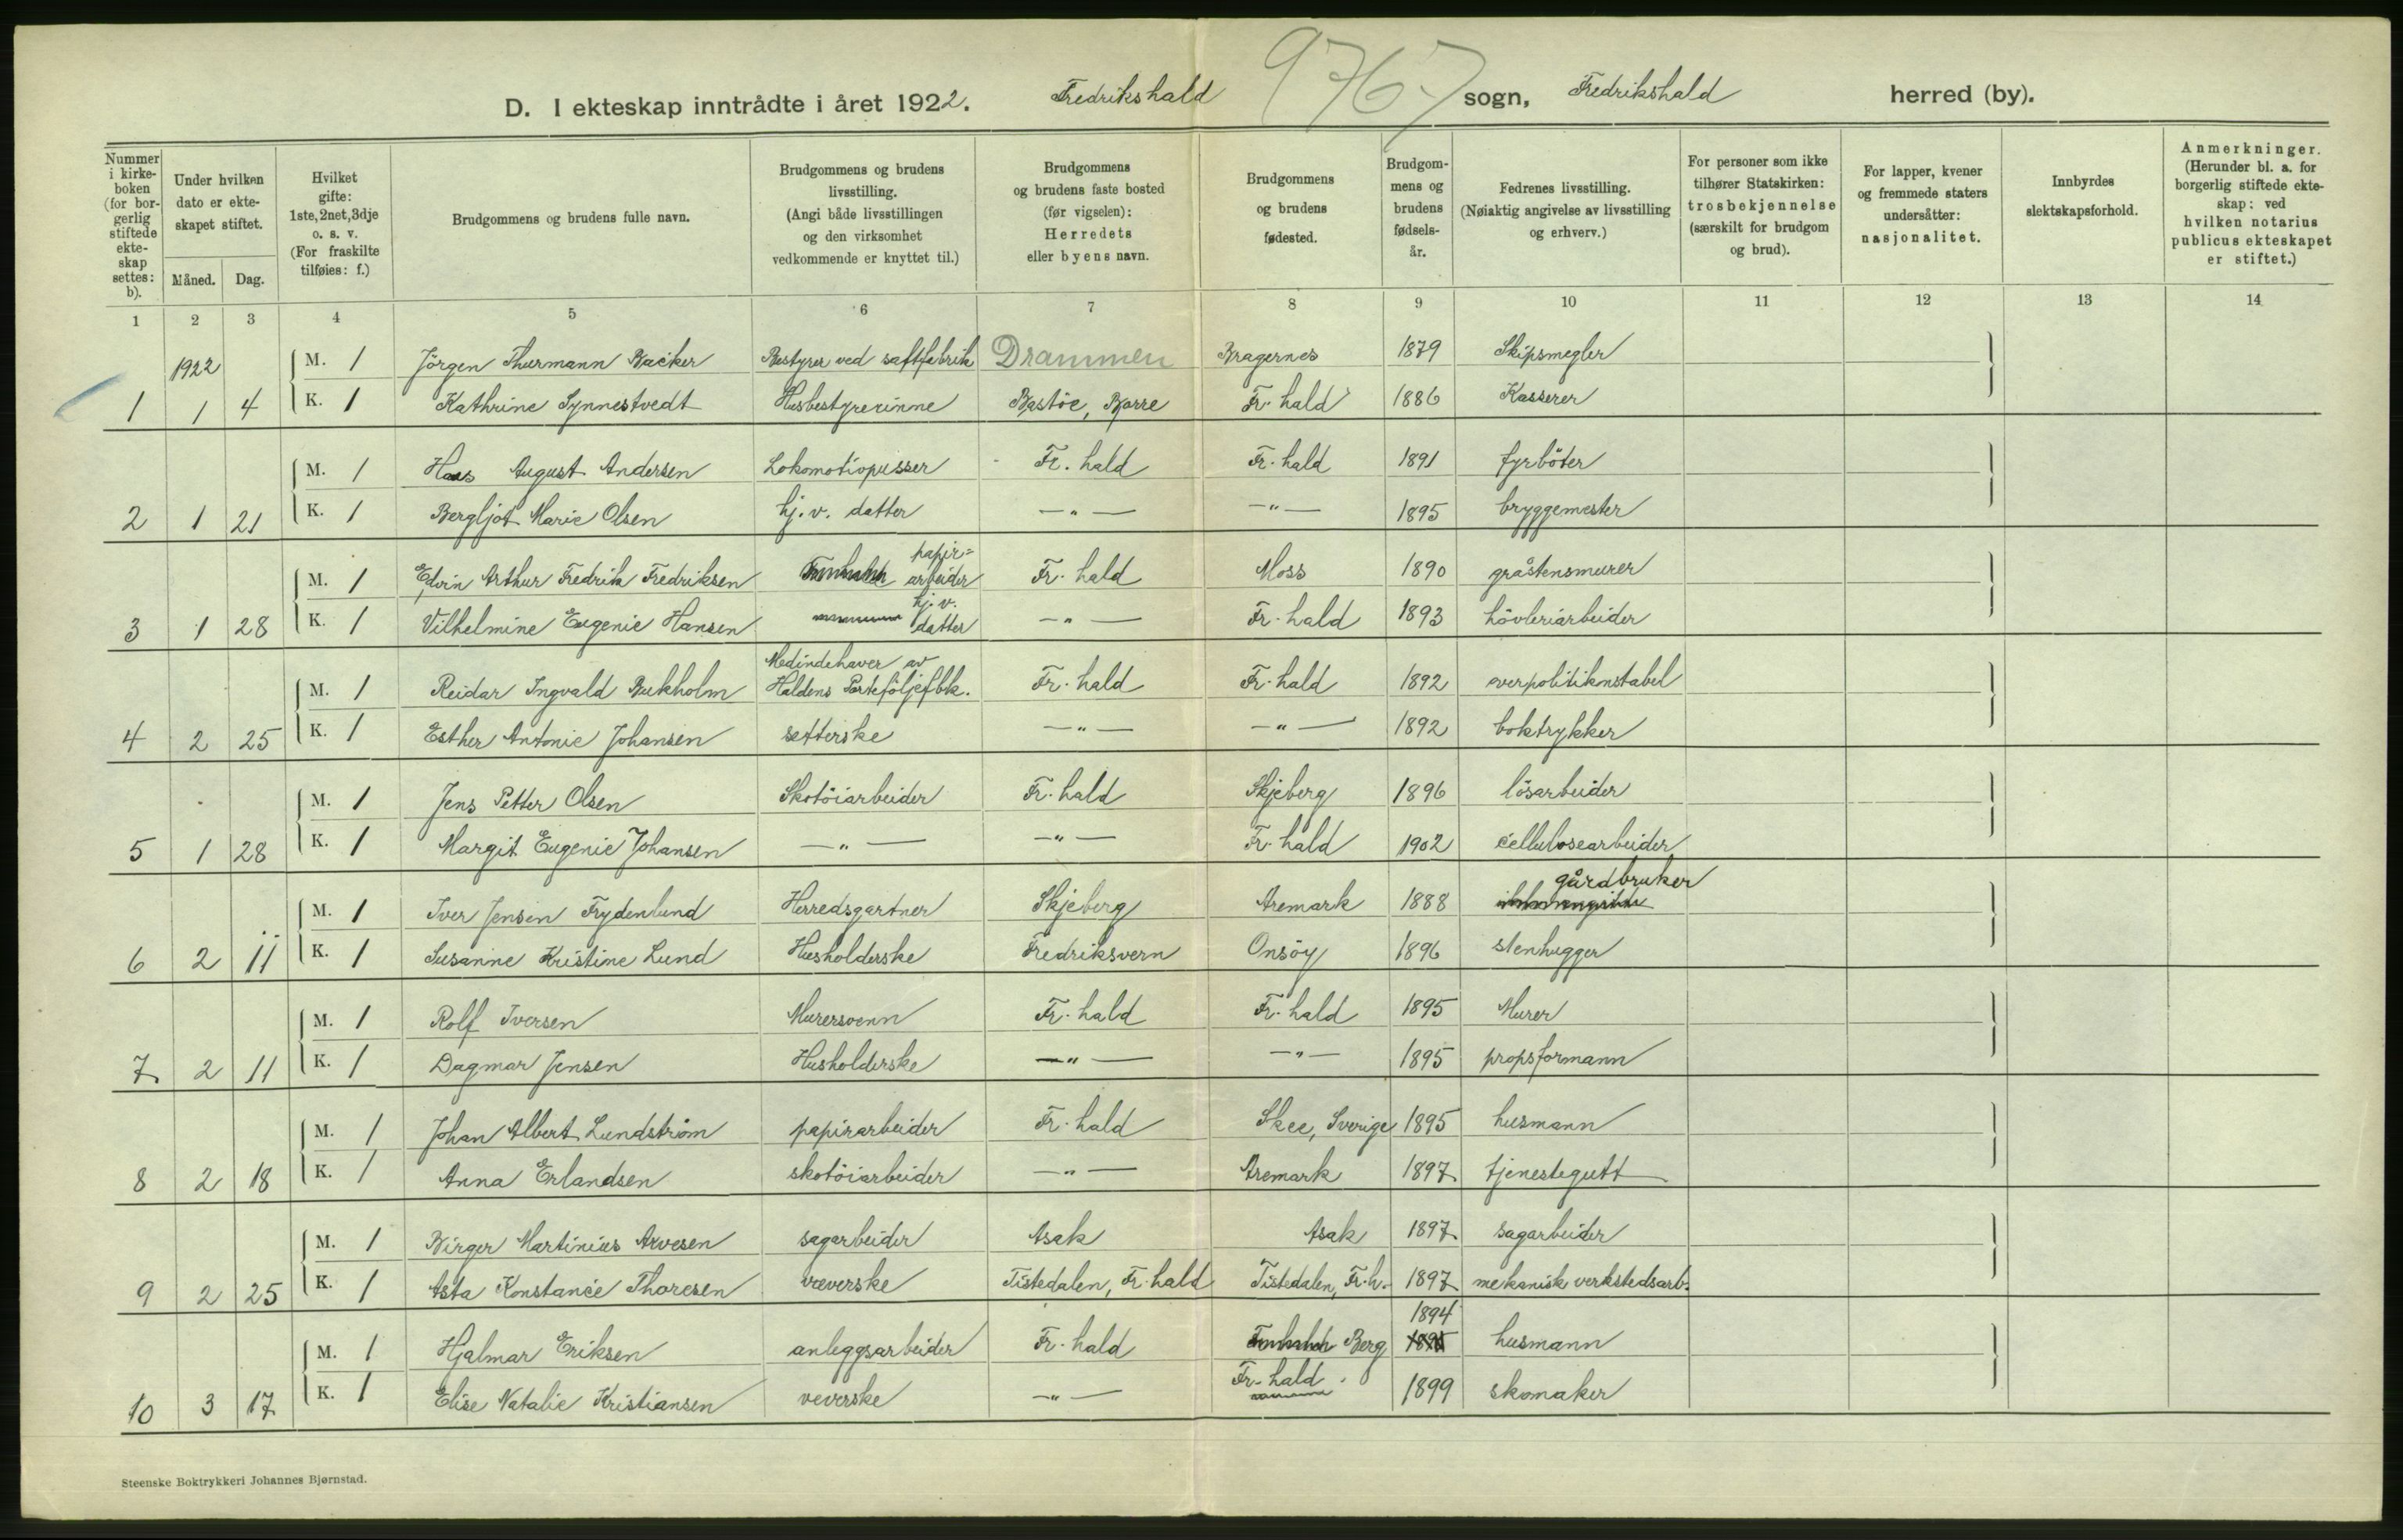 9767
D. I ekteskap inntrådte i året 1922. Fredrikshald sogn, Fredrikshald herred (by).
Nummer i kirkeboken (for borgerlig stiftede ekteskap settes: b).
Under hvilken dato er ekteskapet stiftet.
Måned. Dag.
Hvilket gifte: 1ste, 2net, 3dje o. s. v. (For fraskilte tilføies: f.)
Brudgommens og brudens fulle navn.
Brudgommens og brudens livsstilling. (Angi både livsstillingen og den virksomhet vedkommende er knyttet til.)
Brudgommens og brudens faste bosted (før vigselen): Herredets eller byens navn.
Brudgommens og brudens fødested.
Brudgommens og brudens fødselsår.
Fedrenes livsstilling. (Nøiaktig angivelse av livsstilling og erhverv.)
For personer som ikke tilhører Statskirken: trosbekjennelse (særskilt for brudgom og brud).
For lapper, kvener og fremmede staters undersåtter: nasjonalitet.
Innbyrdes slektskapsforhold.
Anmerkninger. (Herunder bl. a. for borgerlig stiftede ekteskap: ved hvilken notarius publicus ekteskapet er stiftet.)
1 2 3 4 5 6 7 8 9 10 11 12 13 14
1922
M. 1 Jörgen Thurmann Backer Bestyrer ved saftfabrik Drammen Bragernes 1879 Skipsmegler
1 1 4 K. 1 Kathrine Synnestvedt Husbestyrerinne Bastöe, Borre Fr. hald 1886 Kasserer
M. 1 Hans August Andersen Lokomotivpusser Fr. hald Fr. hald 1891 fyrböter
2 1 21 K. 1 Bergljot Marie Olsen hj. v. datter —"— —"— 1895 bryggemester
M. 1 Edvin Arthur Fredrik Fredriksen papir= arbeider Fr. hald Moss 1890 gråstensmurer
3 1 28 K. 1 Vilhelmine Eugenie Hansen hj. v. datter —"— Fr. hald 1893 hövleriarbeider
M. 1 Reidar Ingvald Buckholm Medindehaver av Haldens Porteföljefbk. Fr. hald Fr. hald 1892 overpolitikonstabel
4 2 25 K. 1 Esther Antonie Johansen setterske —"— —"— 1892 boktrykker
M. 1 Jens Petter Olsen Skotöiarbeider Fr. hald Skjeberg 1896 lösarbeider
5 1 28 K. 1 Margit Eugenie Johansen —"— —"— Fr. hald 1902 cellulosearbeider
M. 1 Iver Jensen Frydenlund Herredsgartner Skjeberg Aremark 1888 gårdbruker
6 2 11 K. 1 Susanne Kristine Lund Husholderske Fredriksvern Onsöy 1896 stenhugger
M. 1 Rolf Iversen Murersvenn Fr. hald Fr. hald 1895 Murer
7 2 11 K. 1 Dagmar Jensen Husholderske —"— —"— 1895 propsformann
M. 1 Johan Albert Lundström papirarbeider Fr. hald Skee, Sverige 1895 husmann
8 2 18 K. 1 Anna Erlandsen skotöiarbeider —"— Aremark 1897 tjenestegutt
M. 1 Birger Martinius Arvesen sagarbeider Asak Asak 1897 sagarbeider
9 2 25 K. 1 Asta Konstance Thoresen væverske Tistedalen, Fr. hald Tistedalen, Fr. h. 1897 mekanisk verkstedsarb.
M. 1 Hjalmar Eriksen anleggsarbeider Fr. hald Berg 1894 1895 husmann
10 3 17 K. 1 Elise Natalie Kristiansen veverske —"— Fr. hald 1899 skomaker
Steenske Boktrykkeri Johannes Bjørnstad.